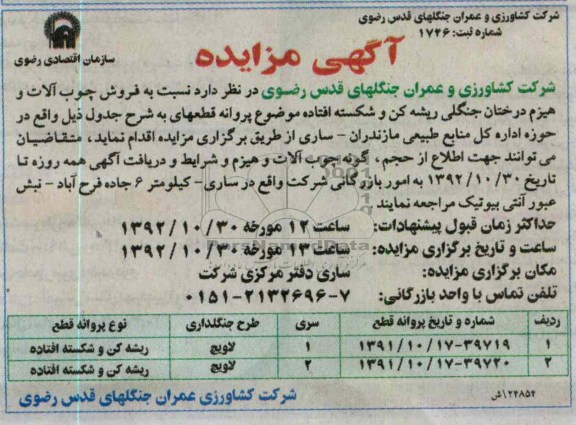 شرکت کشاورزی و عمران جنگلهای قدس رضوی
شماره ثبت: ۱۷۲۶
سازمان اقتصادی رضوی
آگهی مزایده
شرکت کشاورزی و عمران جنگلهای قدس رضوی در نظر دارد نسبت به فروش چوب آلات و
هیزم درختان جنگلی ریشه کن و شکسته افتاده موضوع پروانه قطعهای به شرح جدول ذیل واقع در
حوزه اداره کل منابع طبیعی مازندران - ساری از طریق برگزاری مزایده اقدام نماید، متقاضیان
می توانند جهت اطلاع از حجم، گونه چوب آلات و هیزم و شرایط و دریافت آگهی همه روزه تا
تاریخ ۱۳۹۲/۱۰/۳۰ به امور بازرگانی شرکت واقع در ساری - کیلومتر ۶ جاده فرح آباد - نبش
عبور آنتی بیوتیک مراجعه نمایند
حداکثر زمان قبول پیشنهادات: ساعت ۱۲ مورخه ۱۳۹۲/۱۰/۳۰
ساعت و تاریخ برگزاری مزایده: ساعت ۱۳ مورخه ۱۳۹۲/۱۰/۳۰
مکان برگزاری مزایده: ساری دفتر مرکزی شرکت
تلفن تماس با واحد بازرگانی: ۷-۲۱۳۲۶۹۶-۰۱۵۱
ردیف شماره و تاریخ پروانه قطع سری طرح جنگلداری نوع پروانه قطع
۱ ۱۳۹۱/۱۰/۱۷-۳۹۷۱۹ ۱ لاویج ریشه کن و شکسته افتاده
۲ ۱۳۹۱/۱۰/۱۷-۳۹۷۲۰ ۲ لاویج ریشه کن و شکسته افتاده
۱۲۴۸۵۴/ش
شرکت کشاورزی عمران جنگلهای قدس رضوی